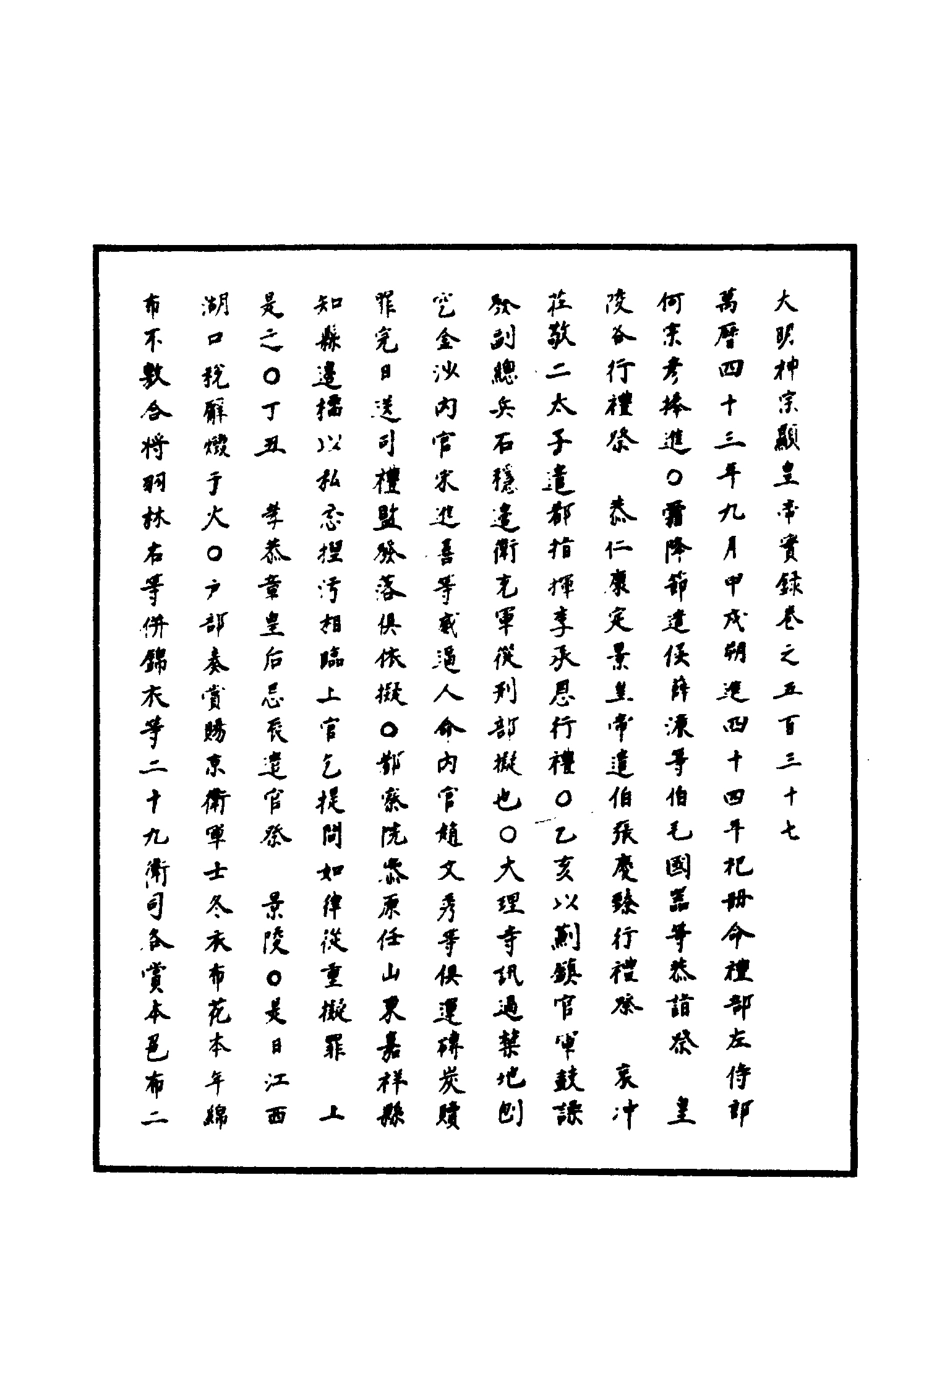 大明神宗顯皇帝實録卷之五百三十七
萬曆四十三年九月甲戌朔進四十四年祀冊命禮部左侍郎
何宗彥捧進○霜降節遣侯薛濂等伯毛國器等恭詣祭　皇
陵各行禮祭　恭仁康定景皇帝遣伯張慶臻行禮祭　哀冲
莊敬二太子遣都指揮李承恩行禮○乙亥以薊鎮官軍鼓譟
發副總兵石穩邊衛充軍從刑部擬也○大理寺訊過禁地刨
空金沙内官宋進喜等威逼人命内官趙文秀等俱運磚炭贖
罪完日送司禮監發落俱依擬○都察院条原任山東嘉祥縣
知縣邊㯽以私忿捏污相臨上官乞提問如律從重擬罪　上
是之○丁丑　孝恭章皇后忌辰遣官祭　景陵○是日江西
湖口稅廨燬于火○户部奏賞賜京衛軍士冬衣布花本年綿
布不敷合将羽林右等併錦衣等二十九衛司各賞本色布二